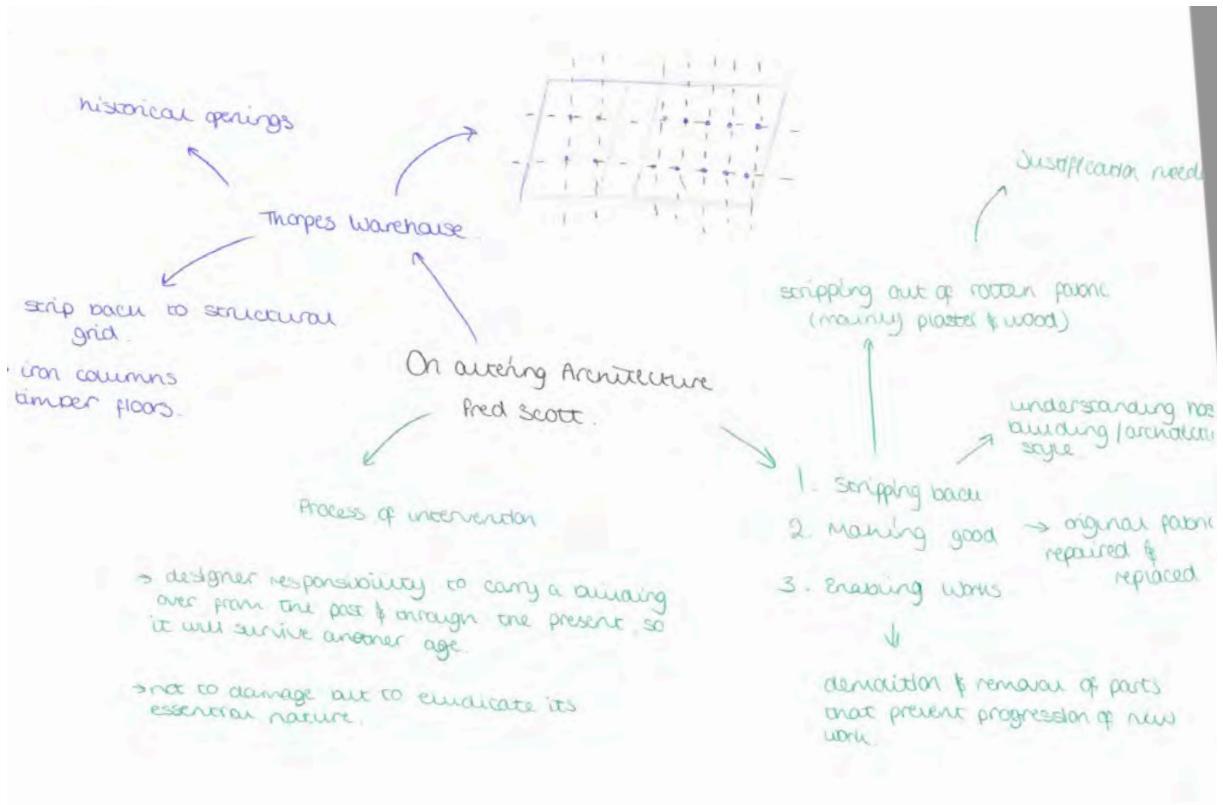 historical openings
Thorpes Warehouse
strip back to structural
grid.
iron columns
timber floors.
On altering Architecture
Fred Scott.
Process of intervention
→ designer responsibility to carry a building
over from the past & through the present, so
it will survive another age.
→ not to damage but to eludicate its
essential nature.
Justification
stripping out of rotten fabric
(mainly plaster & wood)
understanding
building/
style
1. Stripping back
2. Making good → original fabric
repaired &
replaced
3. Enabling works
demolition & removal of parts
that prevent progression of new
work.